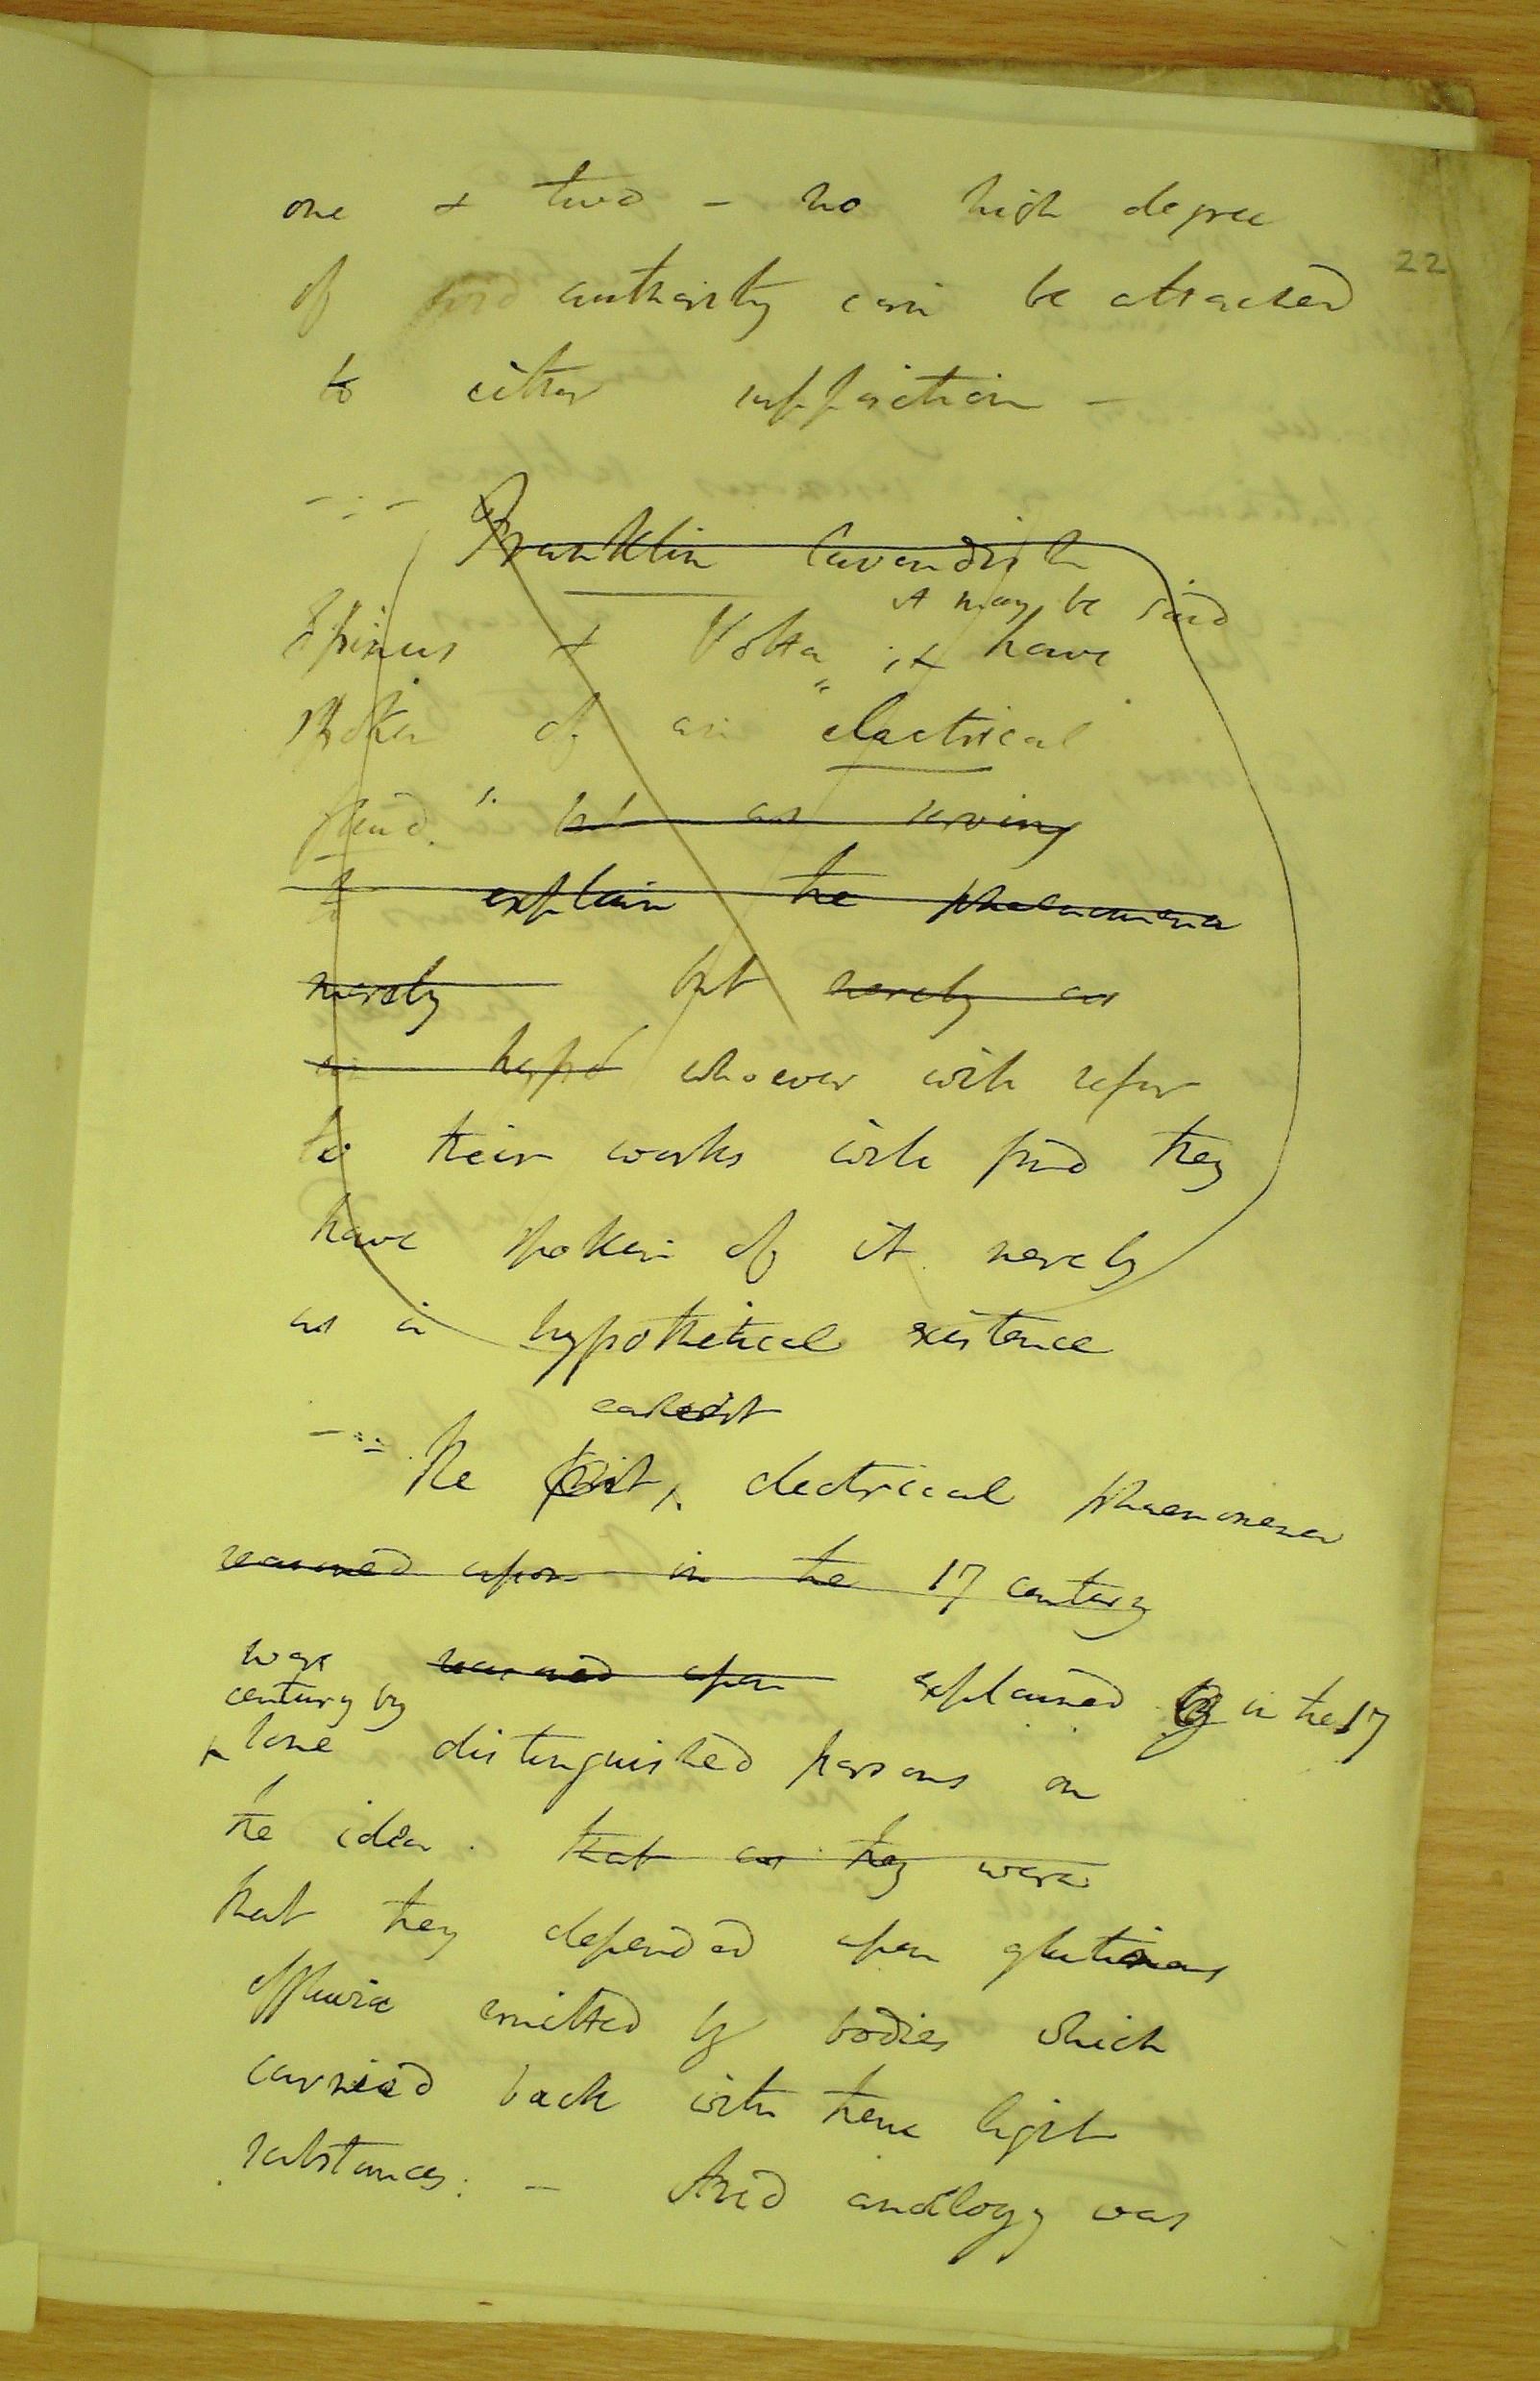 one & two – no high degree
22
of authority can be attached
to either supposition –
Franklin Cavendish
it may be said
Epinus & Volta, it have
spoken of an "electrical
fluid." but as serving
to explain the phaenomena
merely but merely as
an hypo whoever will refer
to their works will find they
have spoken of it merely
as a hypothetical existence
earliest
The first electrical phaenomena
reasoned upon in the 17 century
were reasoned upon explained by in the 17
century by
some distinguished persons on
the idea that as they were
that they depended upon glutinous
effluvia emitted by bodies which
carried back with them light
substances: – And analogy was